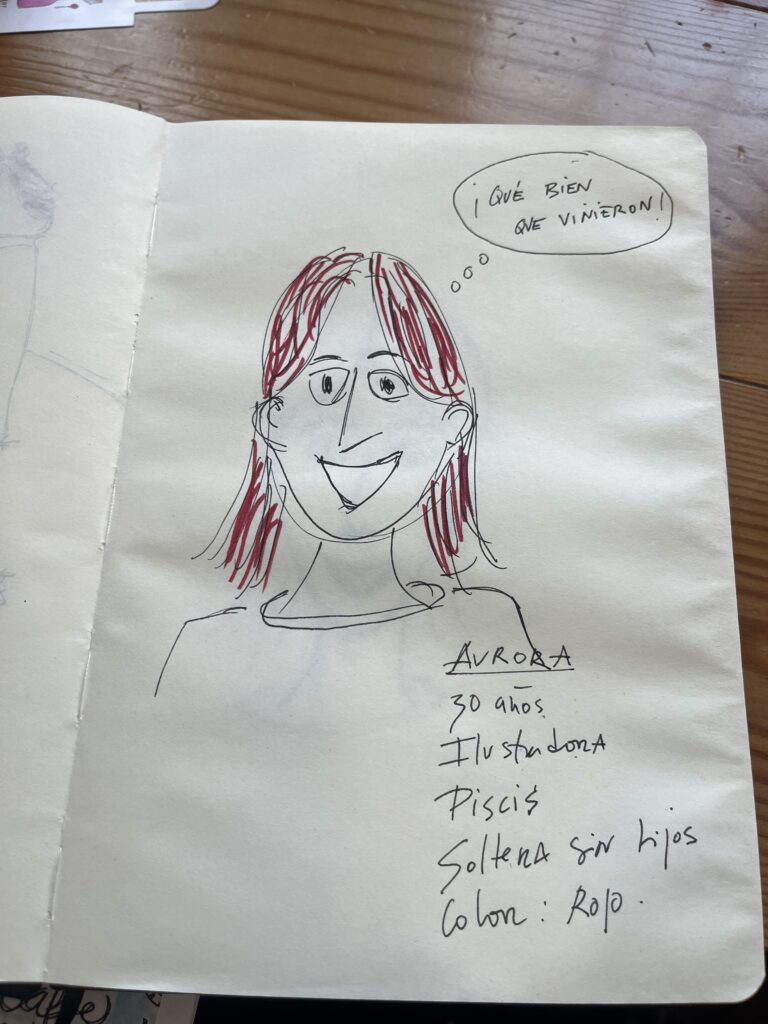 ¡QUÉ BIEN
QUE VINIERON!
AURORA
30 años
Ilustradora
Piscis
Soltera sin hijos
Color: Rojo.